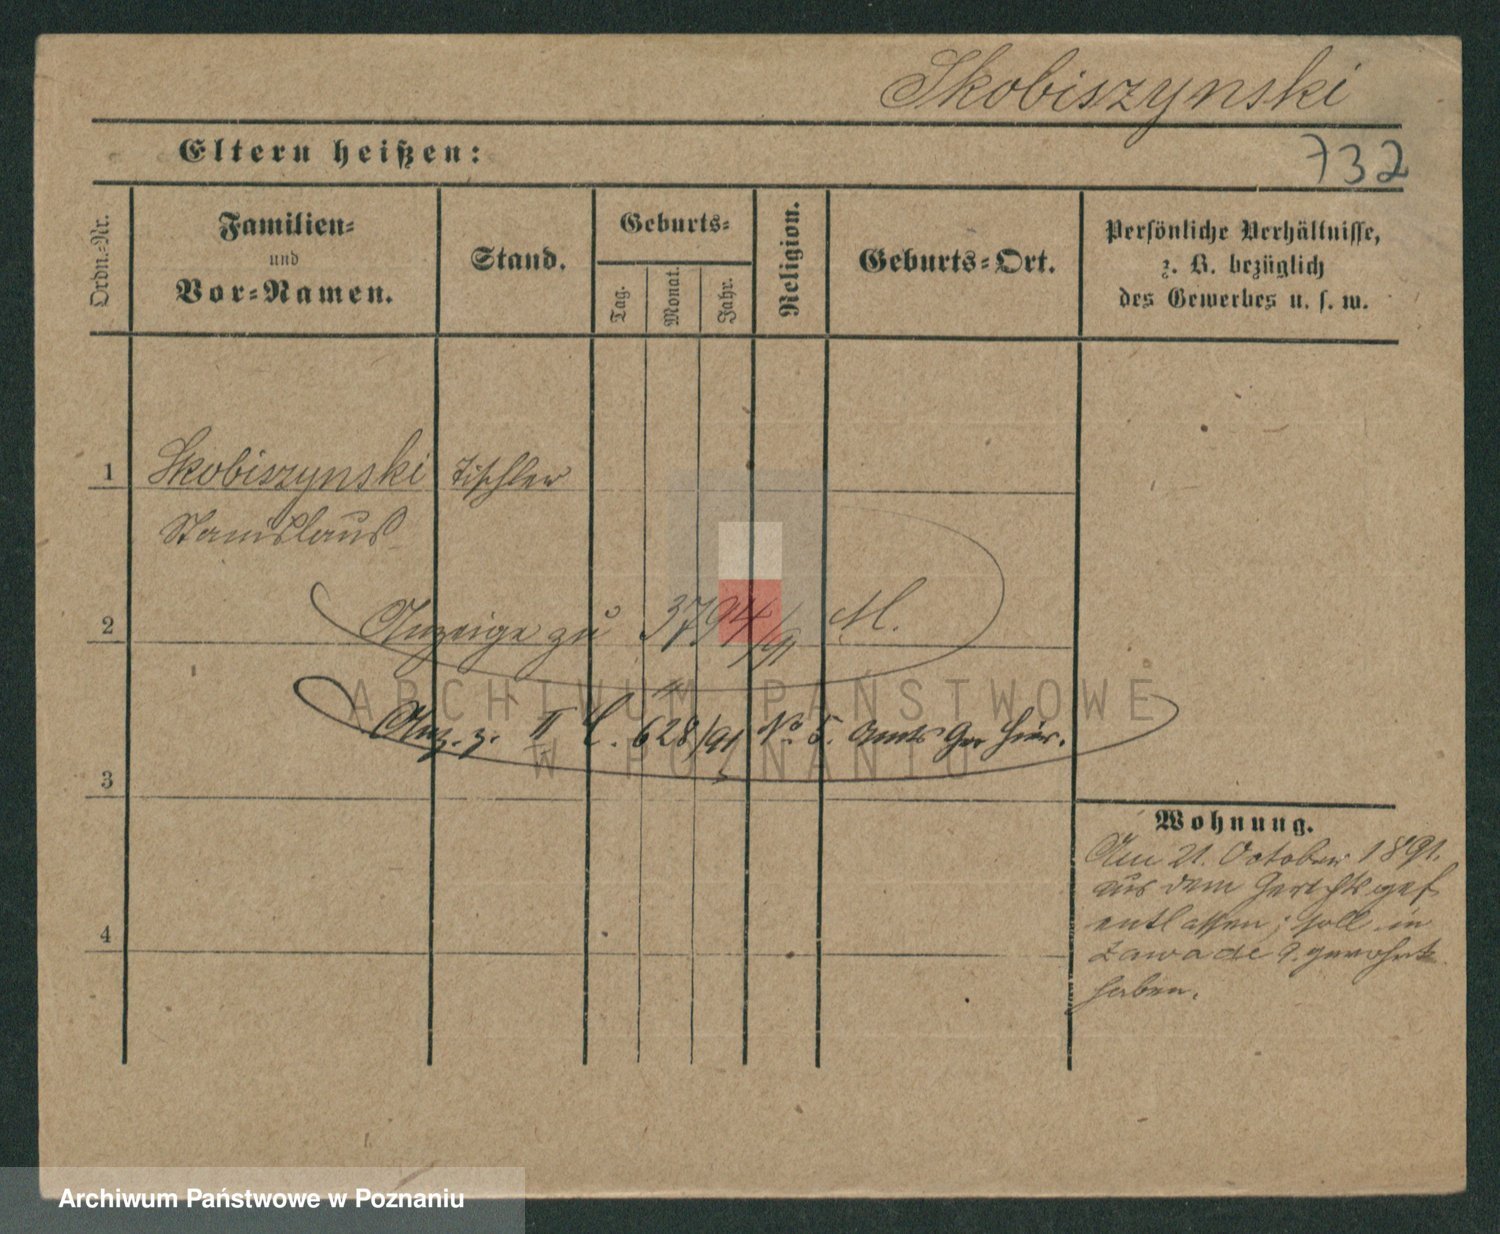 Skobiszynski
Eltern heißen:
732
Ordn.-Nr.
Familien-
und
Vor-Namen.
Stand.
Geburts-
Tag.
Monat.
Jahr.
Religion.
Geburts-Ort.
Persönliche Verhältnisse,
z. B. bezüglich
des Gewerbes u. s. w.
1
Skobiszynski
Tischler
Stanislaus
2
Anzeige zu 3794/91 M.
ARCHIWUM PAŃSTWOWE
W POZNANIU
Anz. z. II C. 628/91 No 5. Amts Ger hier.
3
Wohnung.
Am 21. October 1891.
aus dem Gerichtsgef
entlassen; soll in
Zawade 9. gewohnt
haben.
4
Archiwum Państwowe w Poznaniu